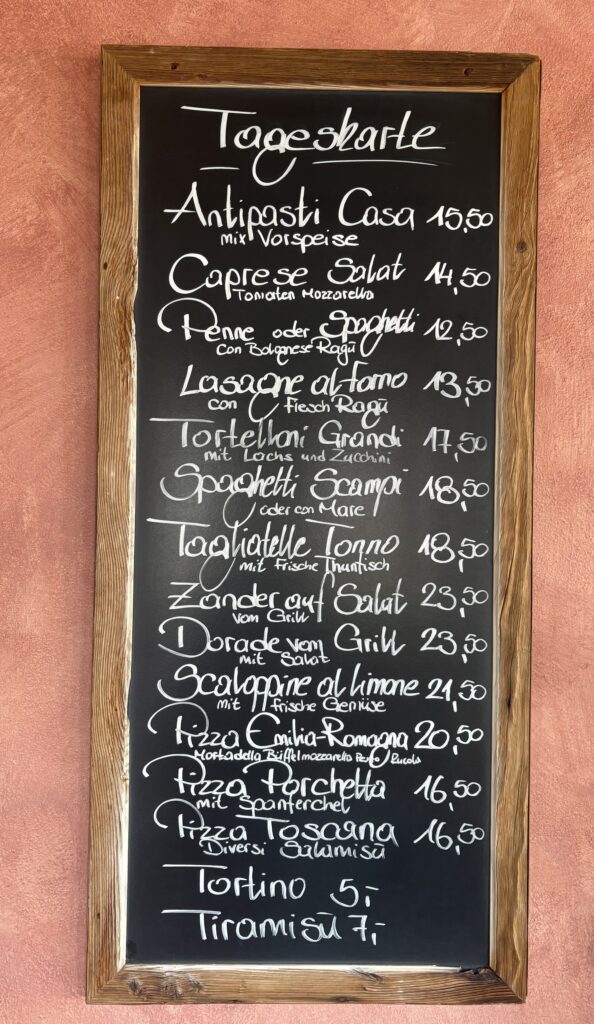 Tageskarte
Antipasti Casa 15,50
mix Vorspeise
Caprese Salat 14,50
Tomaten Mozzarella
Penne oder Spaghetti 12,50
con Bolognese Ragū
Lasagne al forno 13,50
con Fresch Ragū
Tortelloni Grandi 17,50
mit Lachs und Zucchini
Spaghetti Scampi 18,50
oder con Mare
Tagliatelle Tonno 18,50
mit frische Thunfisch
Zander auf Salat 23,50
vom Grill
Dorade vom Grill 23,50
mit Salat
Scaloppine al limone 21,50
mit frische Gemüse
Pizza Emilia-Romagna 20,50
Mortadella Büffelmozzarella Rucola
Pizza Porchetta 16,50
mit Spanferchel
Pizza Toscana 16,50
Diversi Salamisū
Tortino 5,-
Tiramisū 7,-